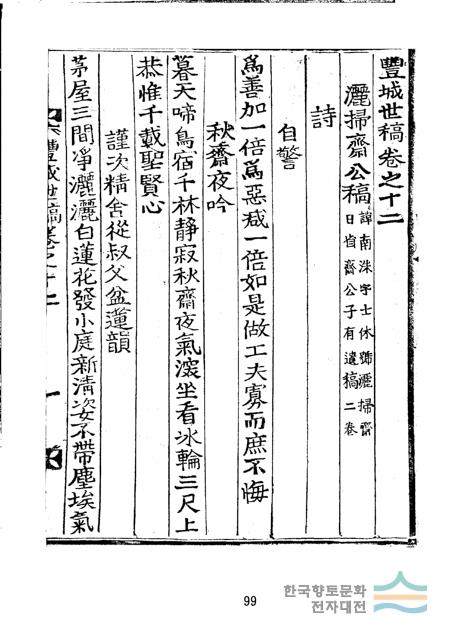 豐城世稿卷之十二
灑掃齋公稿 諱南洙字士休號灑掃齋
日省齋公子有遺稿二卷
詩
自警
爲善加一倍爲惡减一倍如是做工夫寡而庶不悔
秋齋夜吟
暮天啼鳥宿千林静寂秋齋夜氣㴱坐看冰輪三尺上
恭惟千載聖賢心
謹次精舍從叔父盆蓮韻
茅屋三間凈灑灑白蓮花發小庭新淸姿不帶塵埃氣
豐城世稿卷之十二
一
99
한국향토문화
전자대전